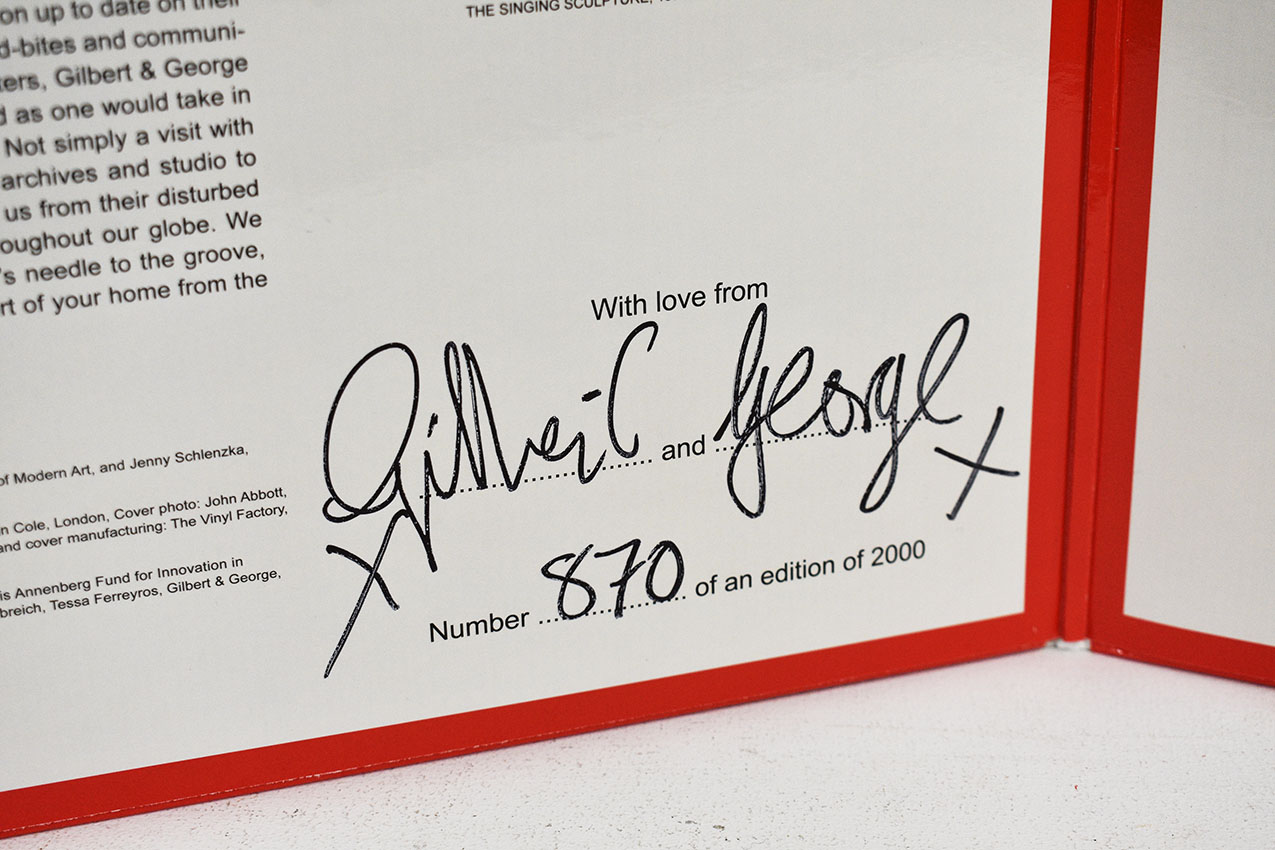 on up to date on their
d-bites and communi-
ters, Gilbert & George
d as one would take in
Not simply a visit with
archives and studio to
us from their disturbed
oughout our globe. We
's needle to the groove,
rt of your home from the
THE SINGING SCULPTURE,
With love from
Gilbert and George
x x
Number 870 of an edition of 2000
of Modern Art, and Jenny Schlenzka,
n Cole, London, Cover photo: John Abbott,
and cover manufacturing: The Vinyl Factory,
is Annenberg Fund for Innovation in
breich, Tessa Ferreyros, Gilbert & George,